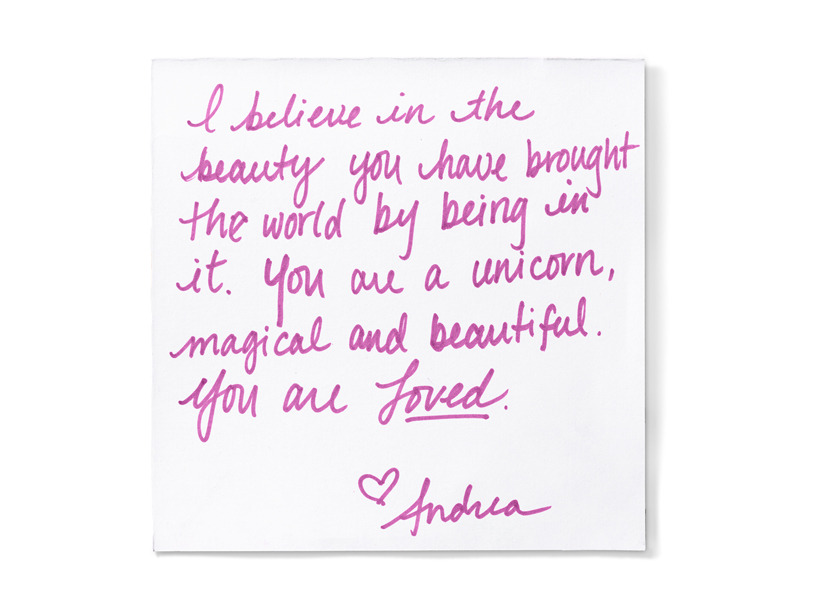 I believe in the
beauty you have brought
the world by being in
it. You are a unicorn,
magical and beautiful.
You are Loved.
♡ Andrea